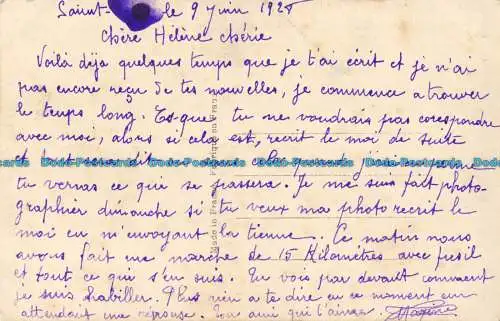 Saint- le 9 Juin 1925
Chère Hélène chérie
Voilà déja quelques temps que je t'ai écrit et je n'ai
pas encore reçu de tes nouvelles, je commence a trouver
le temps long. Es-que tu ne voudrais pas corespondre
avec moi, alors si cela est, recrit le moi de suite
et tout sera dit
tu verras ce qui se passera. Je me suis fait photo-
graphier dimanche si tu veux ma photo recrit le
moi en n'envoyant la tienne. Ce matin nous
avons fait une marche de 15 Kilomètres avec fusil
et tout ce qui s'en suis. Tu vois par devant comment
je suis habiller. Plus rien a te dire en ce moment en
attendant une réponse. Ton ami qui t'aime.
Made in France Fabriqué en France
Dodo-Postcards Dodo-Postcards Dodo-Postcards Dodo-Postcards